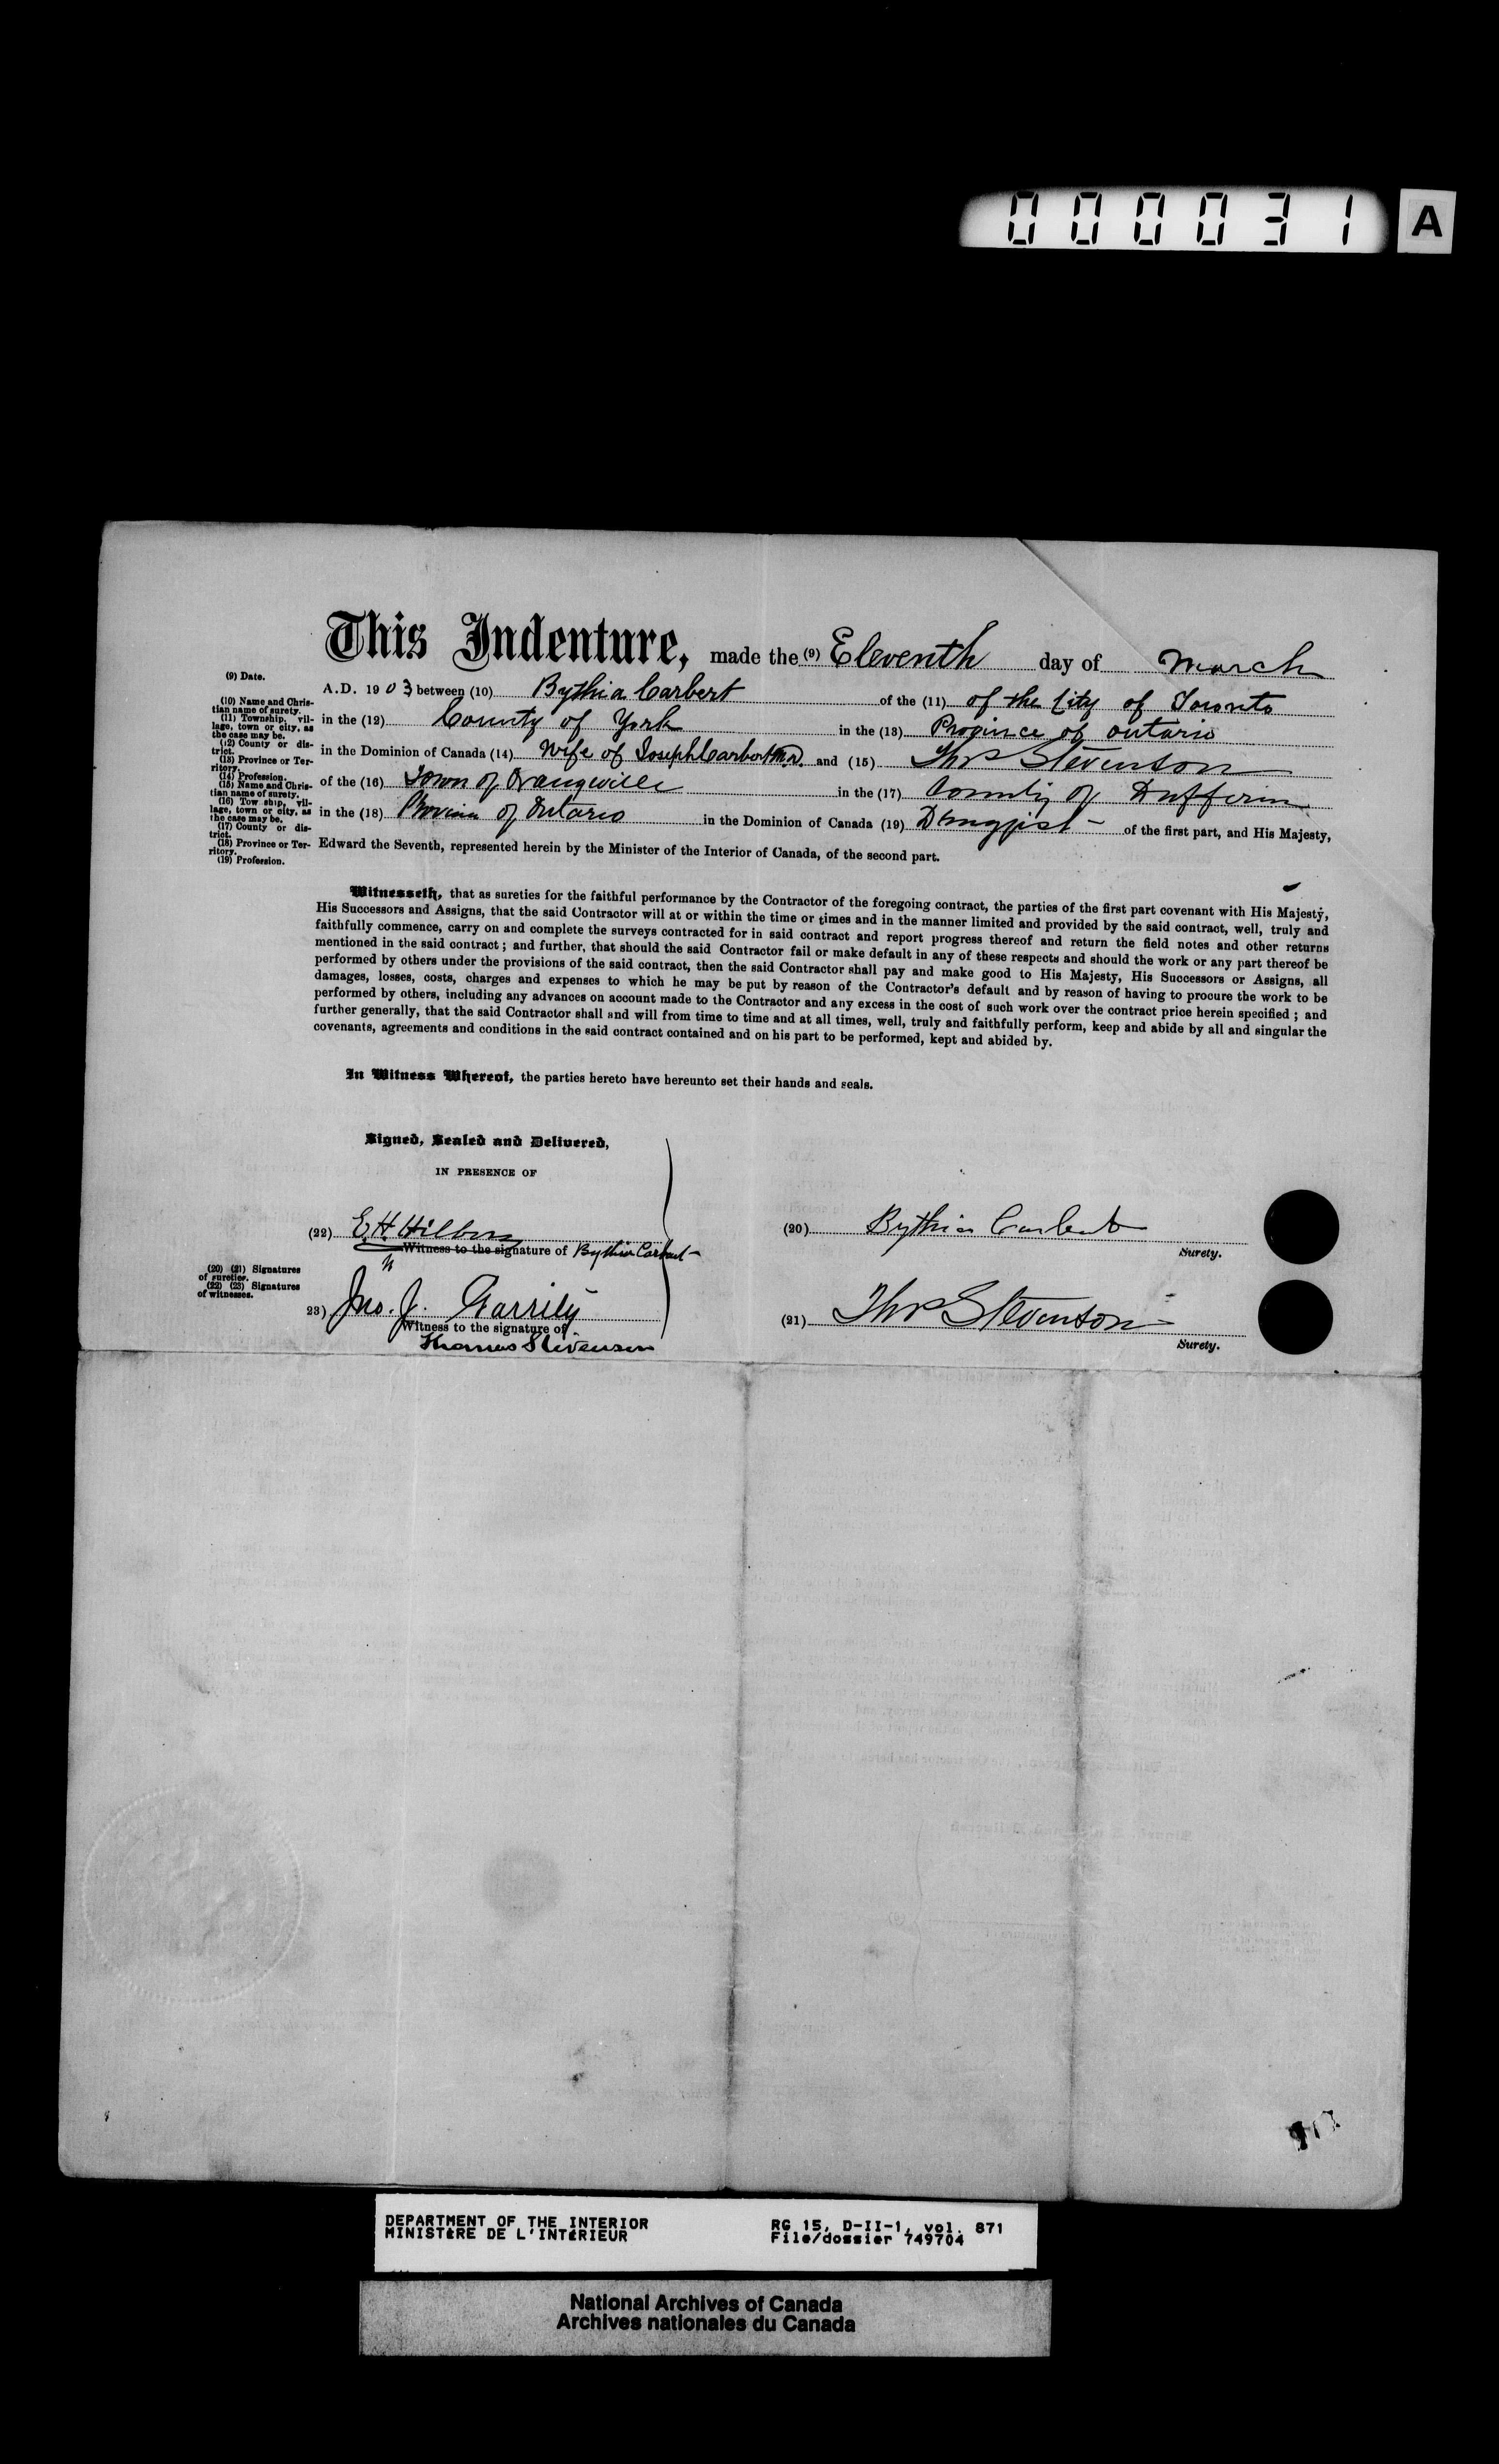 000031 A
This Indenture, made the (9) Eleventh day of March
(9) Date.
A.D. 1903 between (10) Bythia Carbert of the (11) of the City of Toronto
(10) Name and Christian name of surety.
(11) Township, village, town or city, as the case may be.
in the (12) County of York in the (13) Province of Ontario
(12) County or district.
in the Dominion of Canada (14) Wife of Joseph Carbert M.D. and (15) Thos Stevenson
(13) Province or Territory.
(14) Profession.
(15) Name and Christian name of surety.
of the (16) Town of Orangeville in the (17) County of Dufferin
(16) Tow ship, village, town or city, as the case may be.
in the (18) Province of Ontario in the Dominion of Canada (19) Druggist — of the first part, and His Majesty,
(17) County or district.
(18) Province or Territory.
(19) Profession.
Edward the Seventh, represented herein by the Minister of the Interior of Canada, of the second part.
Witnesseth, that as sureties for the faithful performance by the Contractor of the foregoing contract, the parties of the first part covenant with His Majesty,
His Successors and Assigns, that the said Contractor will at or within the time or times and in the manner limited and provided by the said contract, well, truly and
faithfully commence, carry on and complete the surveys contracted for in said contract and report progress thereof and return the field notes and other returns
mentioned in the said contract ; and further, that should the said Contractor fail or make default in any of these respects and should the work or any part thereof be
performed by others under the provisions of the said contract, then the said Contractor shall pay and make good to His Majesty, His Successors or Assigns, all
damages, losses, costs, charges and expenses to which he may be put by reason of the Contractor's default and by reason of having to procure the work to be
performed by others, including any advances on account made to the Contractor and any excess in the cost of such work over the contract price herein specified ; and
further generally, that the said Contractor shall and will from time to time and at all times, well, truly and faithfully perform, keep and abide by all and singular the
covenants, agreements and conditions in the said contract contained and on his part to be performed, kept and abided by.
In Witness Whereof, the parties hereto have hereunto set their hands and seals.
Signed, Sealed and Delivered,
IN PRESENCE OF
(22) E.H. Hilborn (20) Bythia Carbert
Witness to the signature of Bythia Carbert — Surety.
(20) (21) Signatures of sureties.
(22) (23) Signatures of witnesses.
23) Jno. J. (21) Thos Stevenson
Witness to the signature of Surety.
Thomas Stevenson
DEPARTMENT OF THE INTERIOR RG 15, D-II-1, vol. 871
MINISTÈRE DE L'INTÉRIEUR File/dossier 749704
National Archives of Canada
Archives nationales du Canada